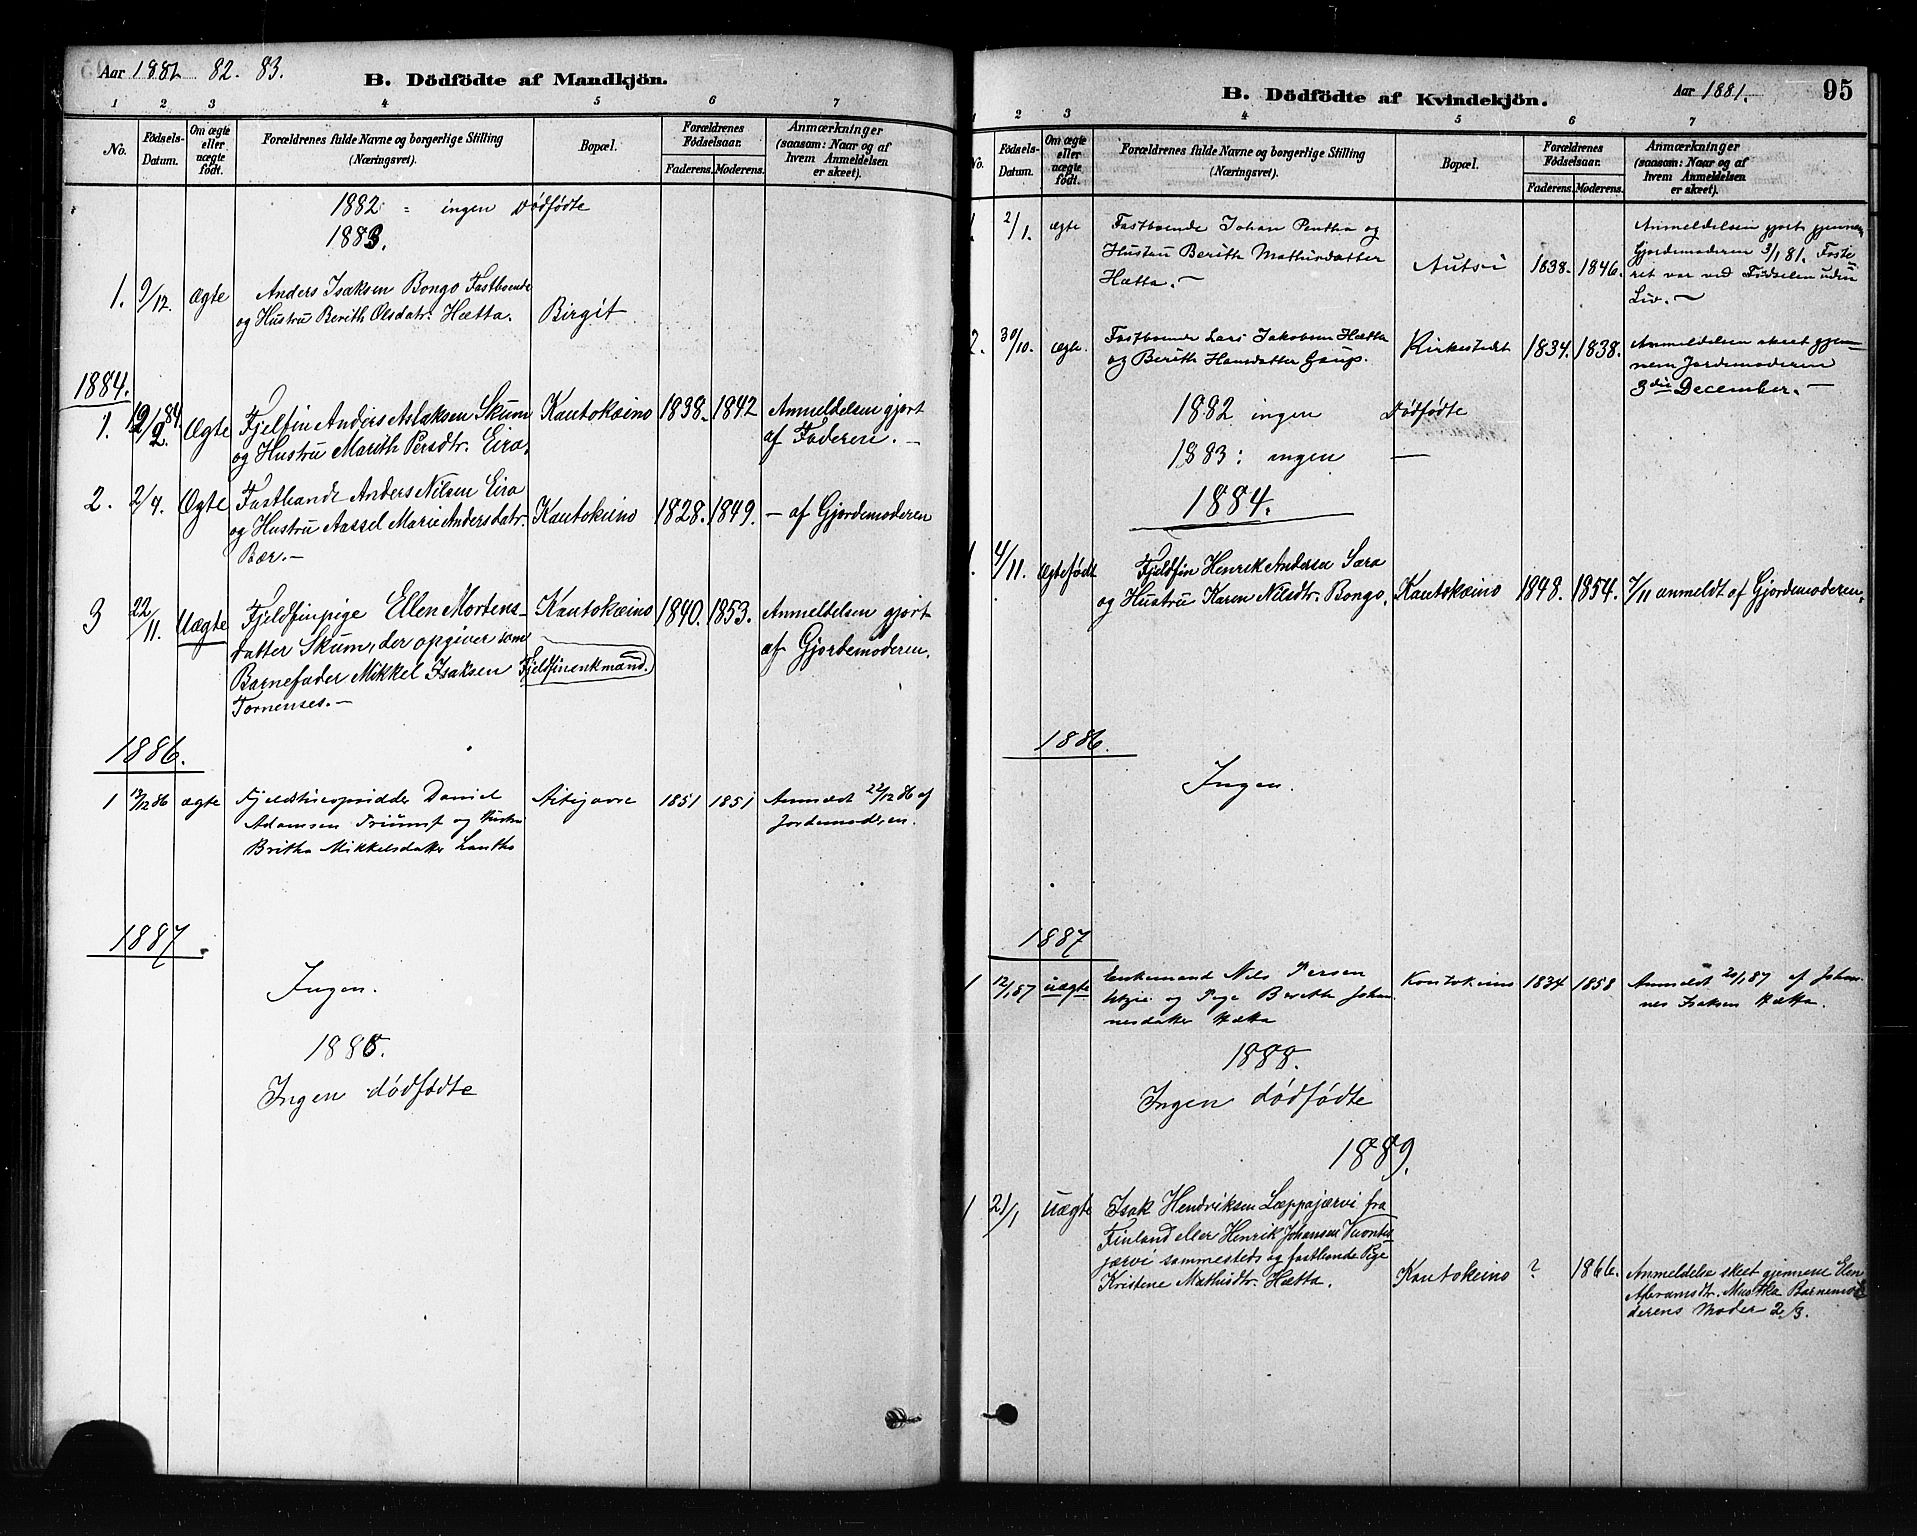 Aar 1882 82. 83.
B. Dödfödte af Mandkjön.
1 2 3 4 5 6 7
No.
Födsels-
Datum.
Om ægte
eller
uægte
födt.
Forældrenes fulde Navne og borgerlige Stilling
(Næringsvei).
Bopæl.
Forældrenes
Födselsaar.
Faderens. Moderens.
Anmærkninger
(saasom: Naar og af
hvem Anmeldelsen
er skeet).
1882 = ingen Dödfödte
1883.
1. 9/12. Ægte Anders Isaksen Bongo Fastboende
og Hustru Berith Olsdatr. Hætta. Birgit
1884.
1. 12/2 84. Ægte Fjelfin Anders Aslaksen Skum Kautokeino 1838. 1842 Anmeldelsen gjort
og Hustru Marith Persdtr. Eira. af Faderen. –
2. 2/7. Ægte Fastbande Anders Nilsen Eira Kautokeino 1828. 1849. – af Gjordemoderen
og Hustru Aassel Marie Andersdatr.
Bær. –
3 22/11. Uægte Fjeldfinpige Ellen Mortens- Kautokæino 1840. 1853. Anmeldelsen gjort
datter Skum, der opgiver som af Gjordemoderen.
Barnefader Mikkel Isaksen Fjeldfinenkmand.
Tornenses. –
1886.
1 13/12 86 ægte Daniel 1851 1851 Anmeldt 22/12 86 af
Adamsen Triumf og Hustru Jordemoderen.
Britha Mikkelsdatter Lantho
1887.
Ingen.
1888.
Ingen dødfødte
B. Dödfödte af Kvindekjön.
Aar 1881.
95
1 2 3 4 5 6 7
No.
Födsels-
Datum.
Om ægte
eller
uægte
födt.
Forældrenes fulde Navne og borgerlige Stilling
(Næringsvei).
Bopæl.
Forældrenes
Födselsaar.
Faderens. Moderens.
Anmærkninger
(saasom: Naar og af
hvem Anmeldelsen
er skeet).
1. 2/1. ægte Fastboende Johan Pentha og Anmeldelsen gjort gjennem
Hustru Berith Mathisdatter Autsi 1838. 1846. Gjordemoderen 3/1 81. Foste-
Hætta. – ret var ved Födselen uden
Liv. –
2. 30/10. ægte. Fastboende Lars Jakobsen Hætta Kirkestedet 1834. 1838. Anmeldelsen skeet gjen-
og Berith Hansdatter Gaup. nem Jordemoderen
3die December. –
1882 ingen Dödfödte
1883: ingen –
1884.
1. 4/11. Ægtefödt Fjeldfin Henrik Andersen Sara
og Hustru Karen Nilsdtr. Bongo. Kautokæino 1848. 1854. 7/11 anmeldt af Gjordemoderen.
1886.
Ingen.
1887
1 12/1 87 uægte Enkemand Nils Persen Kautokeino 1834 1858 Anmeldt 20/1 87 af Johan-
Utzi og Pige Berith Johan- nes Isaksen Hætta.
nesdatter Hætta
1888.
Ingen dødfødte
1889.
1 21/1 Uægte Isak Hendriksen Læppajærvi fra
Finland eller Henrik Johansen Vuontis-
jærvi sammesteds og fastbende Pige
Kristine Mathisdtr. Hætta. Kautokeino ? 1866. Anmeldelse skeet gjennem Elen
Abramsdtr. Mustka Barnemo-
derens Moder 2/3.